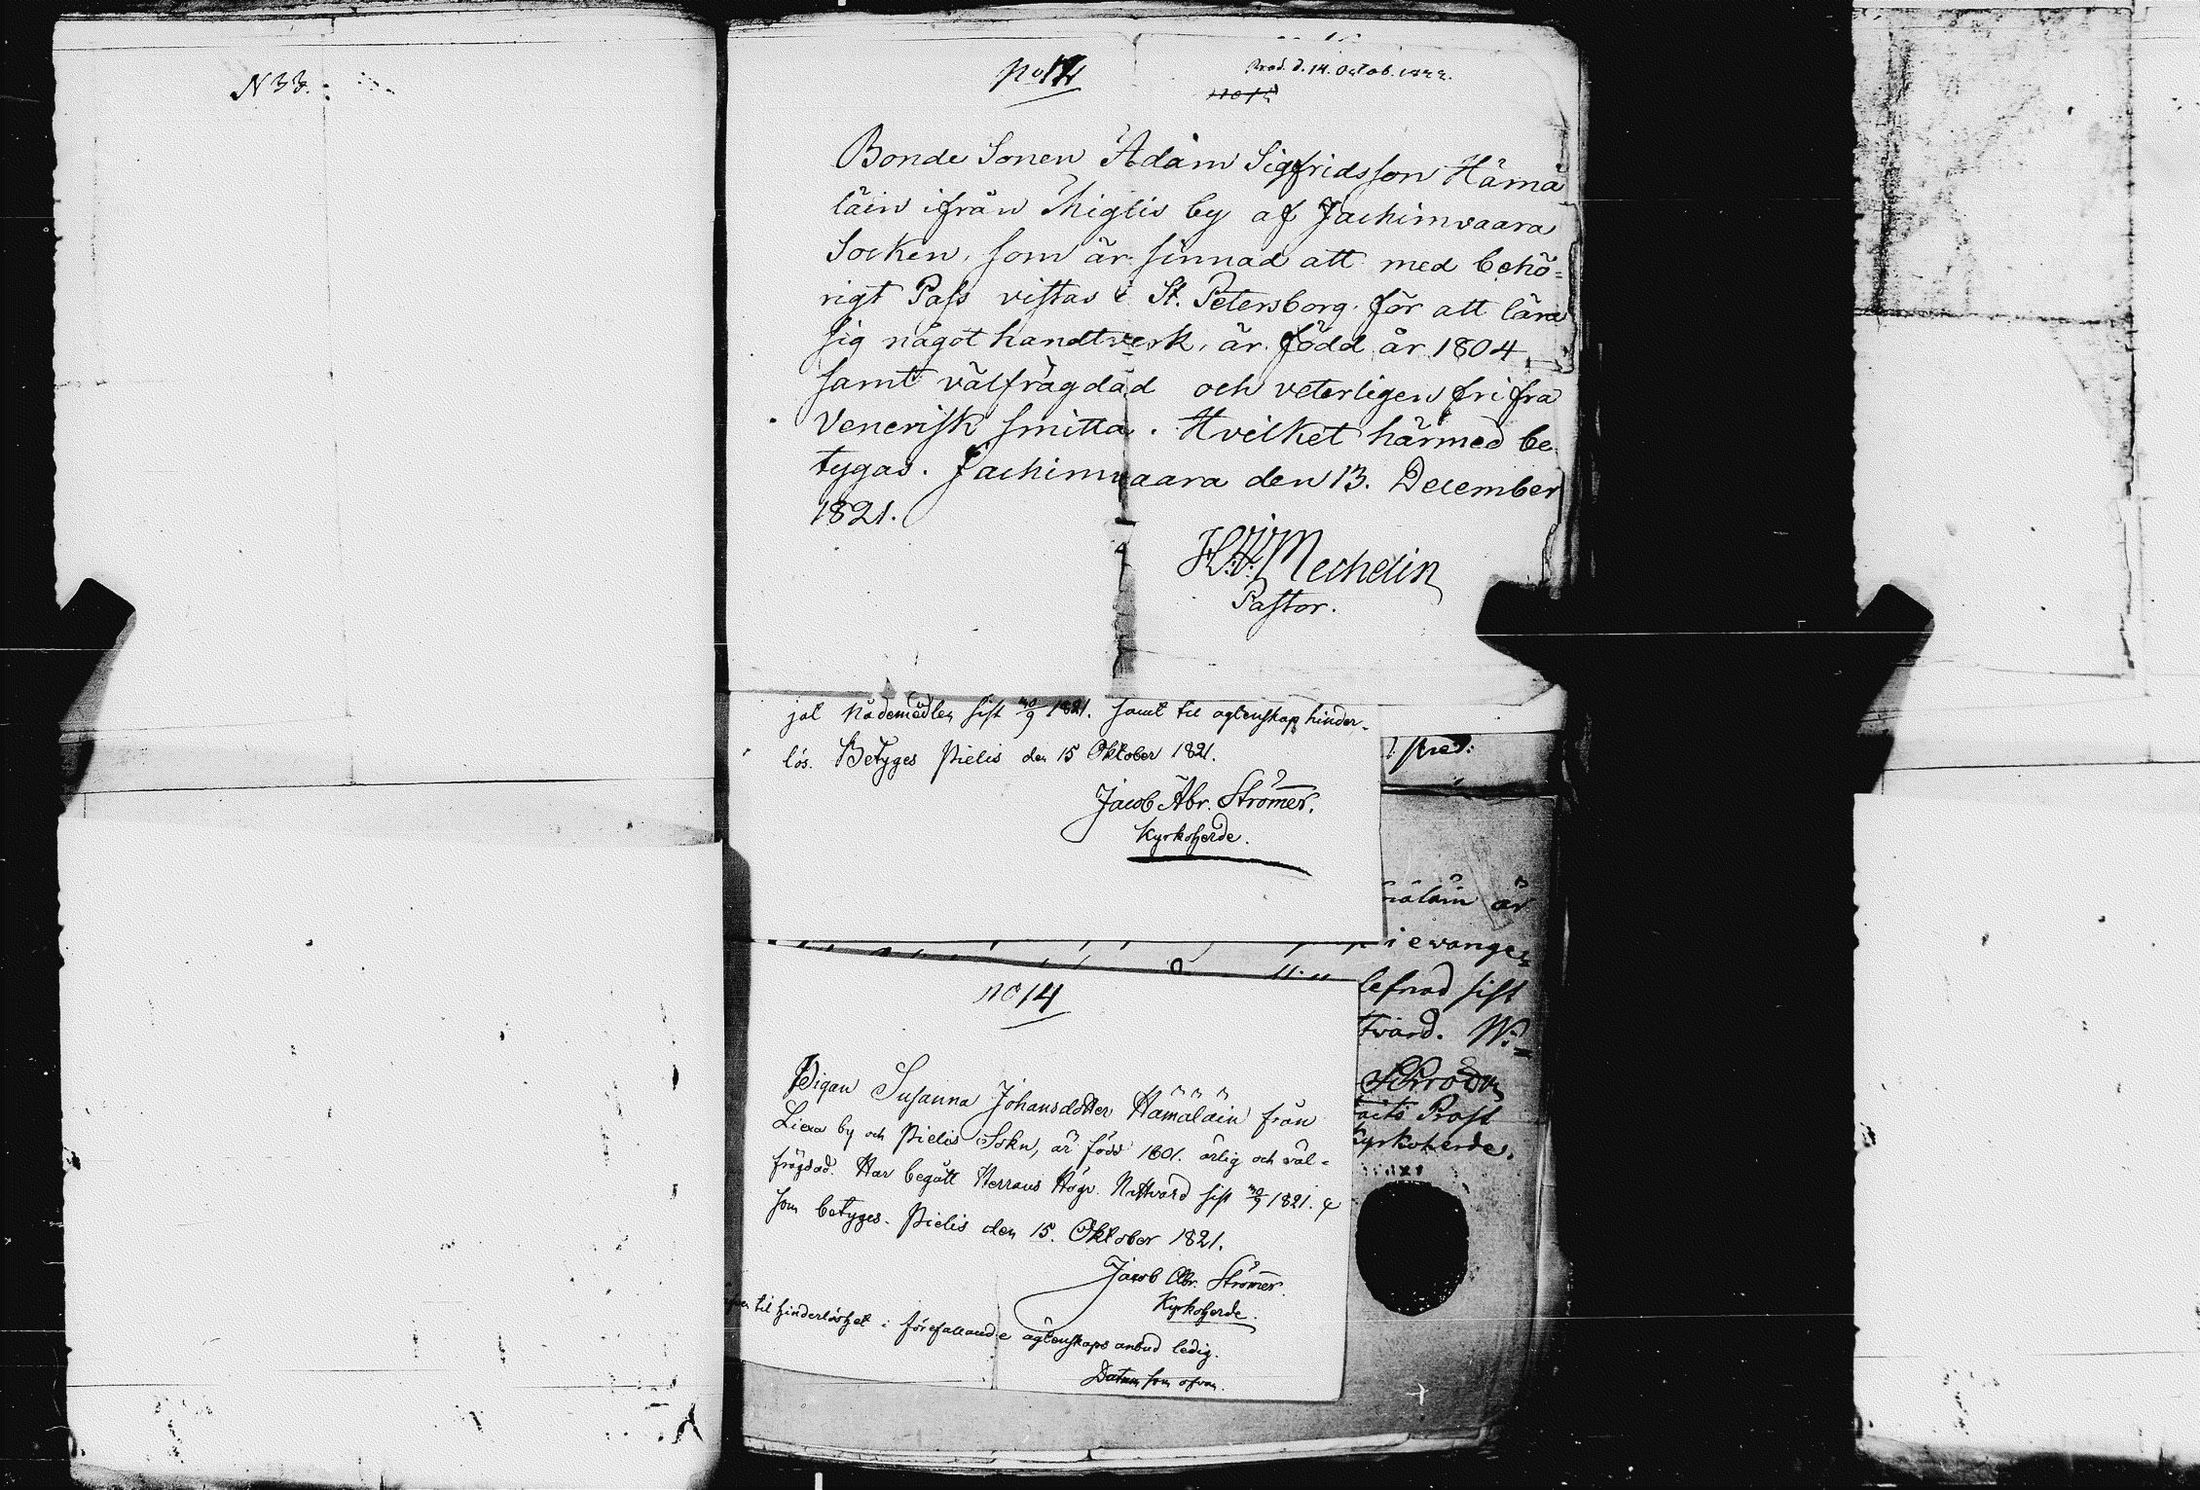 N 33.
No 14
Prod. d. 14. Octob. 1822.
Bonde Sonen Adam Sigfridsson Hämä
läin ifrån Miglis by af Jachimvaara
Socken, som är sinnad att med behö=
rigt Pass vistas i St. Petersborg för att lära
sig något handtverk, är född år 1804
samt välfrägdad och veterligen fri från
Venerisk smitta. Hvilket härmed be
tygas. Jachimvaara den 13. December
1821.
Mechelin
Pastor.
jat Nådemedlen sist 30/9 1821. samt til ägtenskap hinder-
lös. Betyges Pielis den 15 Oktober 1821.
Jacob Abr. Strömer.
Kyrkoherde.
pred:
mäläin är
i evange
lefnad sist
tvard. W:
Schröder
Prost
Kyrkoherde.
no 14
Pigan Susanna Johansdotter Hämäläin från
Liexa by och Pielis Sokn, är född 1801. ärlig och väl-
frägdad. Har begått Herrans Högv. Nattvard sist 30/9 1821. &
som betyges. Pielis den 15. Oktober 1821.
Jacob Abr. Strömer.
Kyrkoherde.
til hinderlöshet i förefallande ägtenskaps anbud ledig.
Datum som ofvan.